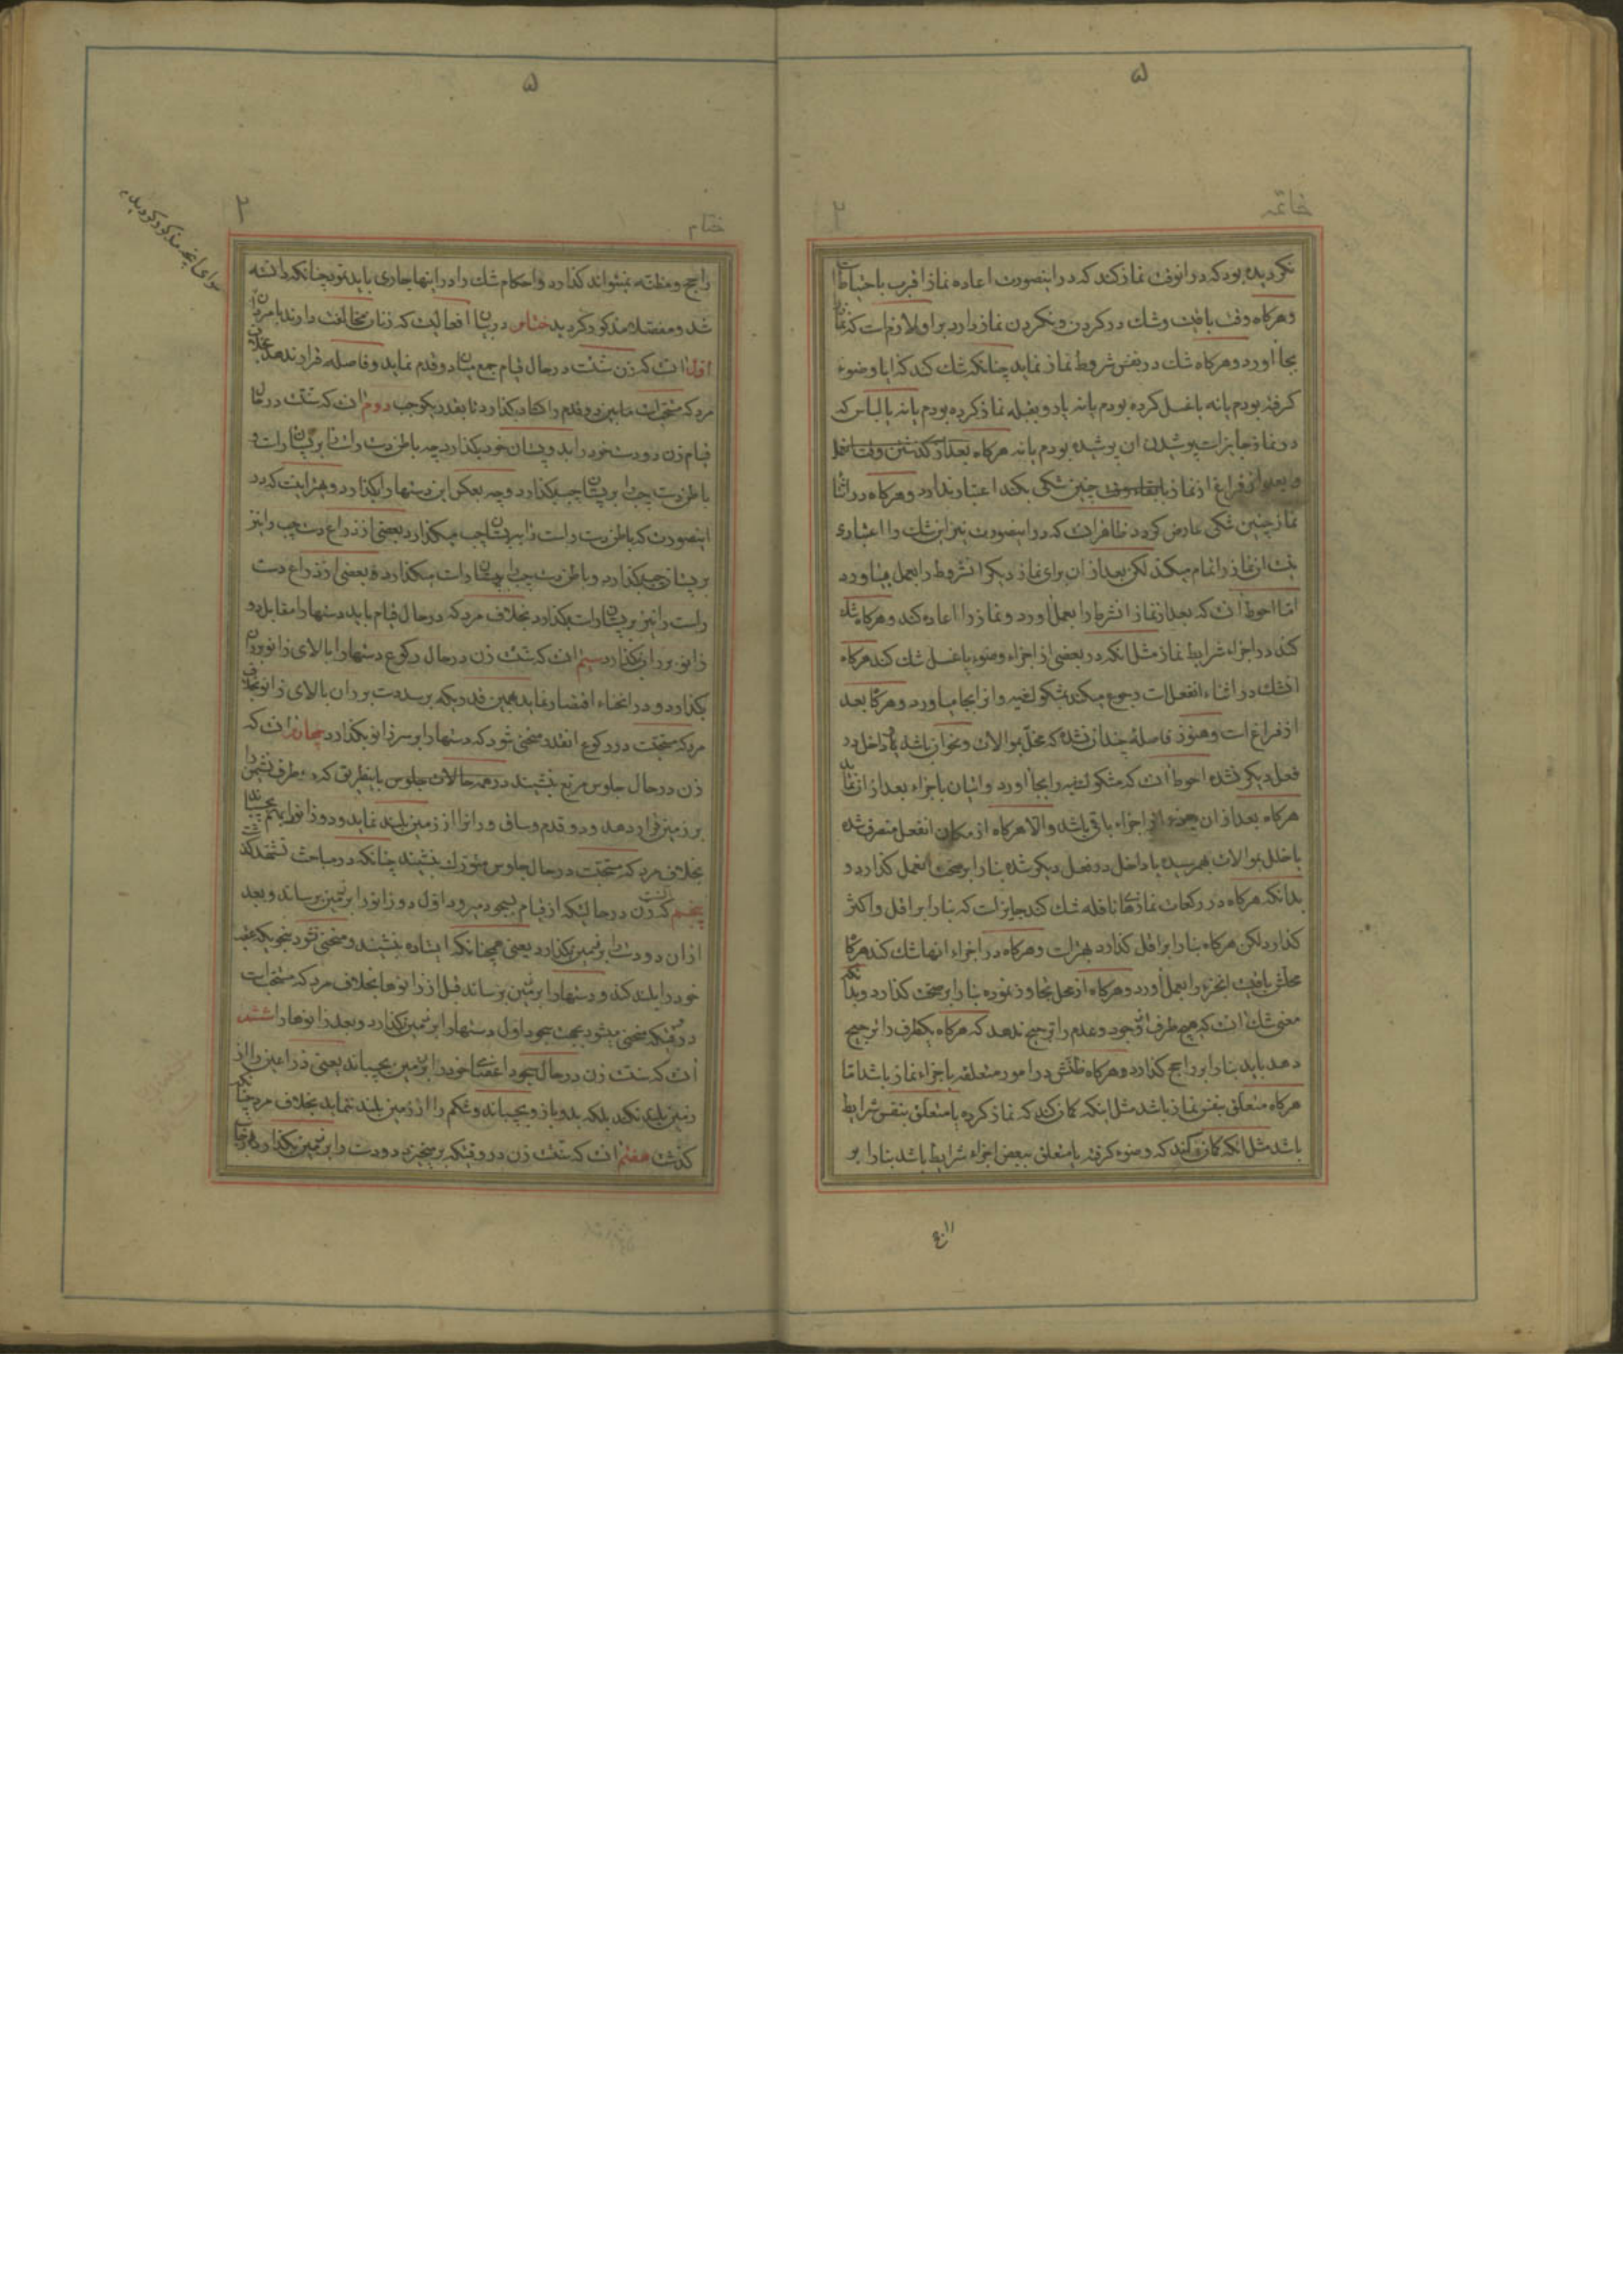 ۵
خاتمه
۲
نکردیده بود که در انوقت نماز کند که در اینصورت اعاده نماز اقرب باحتیاط
و هرکاه وقت باقیست و شک در کردن و نکردن نماز دارد بر او لازم است که نماز
بجا اورد و هرکاه شک در بعض شروط نماز نماید چنانکه شک کند که ایا وضوء
کرفته بودم یا نه یا غسل کرده بودم یا نه یا رو بقبله نماز کرده بودم یا نه یا لباس که
در نماز جایز است پوشیدن ان پوشیده بودم یا نه هرکاه بعد از کذشتن وقت نماز
و یا بعد از فراغ از نماز با بقاء وقت چنین شکی بکند اعتبار ندارد و هرکاه در اثنا
نماز چنین شکی عارض کردد ظاهر انست که در اینصورت نیز این شک را اعتباری
نیست از نماز را تمام میکند لکن بعد از ان برای نماز دیکر انشروط را بعمل میاورد
اما احوط انست که بعد از نماز انشرط را بعمل اورد و نماز را اعاده کند و هرکاه شک
کند در اجزاء شرایط نماز مثل انکه در بعضی از اجزاء وضوء یا غسل شک کند هرکاه
انشک در اثناء انفعل است رجوع میکند بمشکوک فیه و انرا بجا میاورد و هرکاه بعد
از فراغ است و هنوز فاصله چندان نشده که مخل بموالات و نحو ان باشد یا داخل در
فعل دیکر نشده احوط انست که مشکوک فیه را بجا اورد و اتیان باجزاء بعد از ان نماید
هرکاه بعد از ان جزء از اجزاء باقی باشد و الا هرکاه از مکان انفعل منصرف شده
یا خلل بموالات بهمرسیده یا داخل در فعل دیکر شده بنا را بر صحت انعمل کذارد و
بدانکه هرکاه در رکعات نمازهای نافله شک کند جایز است که بنا را بر اقل و اکثر
کذارد لکن هرکاه بنا را بر اقل کذارد بهتر است و هرکاه در اجزاء انها شک کند هرکاه
محلش باقیست انجزء را بعمل اورد و هرکاه از محل تجاوز نموده بنا را بر صحت کذارد و بدانکه
معنی شک انست که هیچ طرف از وجود و عدم را ترجیح ندهد که هرکاه یکطرف را ترجیح
دهد باید بنا را بر راجح کذارد و هرکاه ظنش در امور متعلقه باجزاء نماز باشد اما
هرکاه متعلق بنفس نماز باشد مثل اینکه کمان کند که نماز کرده یا متعلق بنفس شرایط
باشد مثل انکه کمان کند که وضوء کرفته یا متعلق ببعض اجزاء شرایط باشد بنا را بر
۵
ختام
۲
راجح و مظنه نمیتواند کذارد و احکام شک را در اینها جاری باید نمود چنانکه دانسته
شد و مفصلا مذکور کردید ختام در بیان افعالیست که زنان مخالفت دارند با مردان
اول انست که زن سنت در حال قیام جمع میان دو قدم نماید و فاصله قرار ندهد بخلاف
مرد که مستحب است ما بین دو قدم را کشاده کذارد تا بقدر یکوجب دوم انست که سنت در حال
قیام زن دو دست خود را بدو پستان خود بکذارد چه باطن دست راست را بر پستان راست و
باطن دست چپ را بر پستان چپ بکذارد و چه بعکس این دستها را بکذارد و بهتر اینست که در
اینصورت که باطن دست راست را بر پستان چپ میکذارد بعضی از ذراع دست چپ را نیز
بر پستان چپ بکذارد و باطن دست چپ را بر پستان راست میکذارد و بعضی از ذراع دست
راست را نیز بر پستان راست بکذارد بخلاف مرد که در حال قیام باید دستها را مقابل دو
زانو بر ران بکذارد سیم انست که سنت زن در حال رکوع دستها را بالای زانو بر ران
بکذارد و در انحناء اقتصار نماید بهمین قدر یکه برسد دست بر ران بالای زانو بخلاف
مرد که مستحبست در رکوع انقدر منحنی شود که دستها را بر سر زانو بکذارد چهارم انست که
زن در حال جلوس مربع بنشیند در همه حالات جلوس باینطریق که دو طرف نشیمن را
بر زمین قرار دهد و دو قدم و ساق و ران را از زمین بلند نماید و دو زانو را بهم بچسباند
بخلاف مرد که مستحبست در حال جلوس متورک بنشیند چنانکه در مباحث تشهد کذشت
پنجم انست که زن در حالتیکه از قیام بسجود میرود اول دو زانو را بر زمین برساند و بعد
از ان دو دست را بر زمین بکذارد یعنی همچنانکه ایستاده بنشیند و منحنی نشود بنحویکه عقب
خود را بلند کند و دستها را بر زمین برساند قبل از زانوها بخلاف مرد که مستحب است
در وقتیکه منحنی میشود بجهت سجود اول دستها را بر زمین بکذارد و بعد زانوها را ششم
انست که سنت زن در حال سجود اعضای خود را بر زمین بچسباند یعنی ذراعین را از
زمین بلند نکند بلکه بدو بازو بچسباند و شکم را از زمین بلند ننماید بخلاف مرد چنانکه
کذشت هفتم انست که سنت زن در وقتیکه برمیخیزد دو دست را بر زمین بکذارد
سوای انچه مذکور کردید